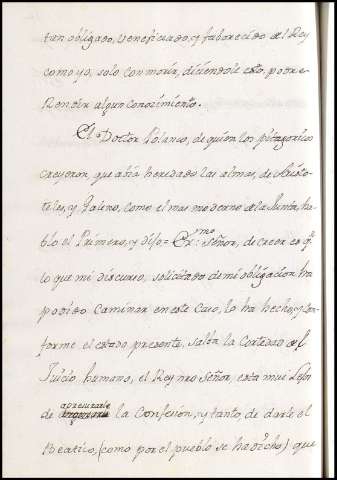 tan obligado, veneficiado, y faborecido del Rey
como yo, solo con morir, diciendole esto, podre
Rendir algun conozimiento.
El Doctor Polanco, de quien los pitagoricos
creyeron, que abia heredado las almas, de Aristo-
teles, y Galeno, como el mas moderno de la Junta, ha-
blo el Primero, y dijo = Ex.mo Señor, de creer es q.e
lo que mi discurso, solicitado de mi obligacion, ha
podido caminar en este Caso, lo ha hecho, y con-
forme el estado presente, salba la Cortedad del
Juicio humano, el Rey nro Señor, esta mui lejos
de apresurarle la Confesion, y tanto de darle el
Beatico, (como por el pueblo se ha dicho) que